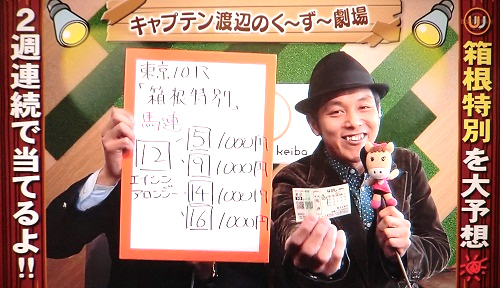 キャプテン渡辺のく〜ず〜劇場
箱根特別を大予想
2週連続で当てるよ!!
東京10R
「箱根特別」
馬連
12
エイシン
アロンジー
5 1000円
9 1000円
14 1000円
16 1000円
keiba